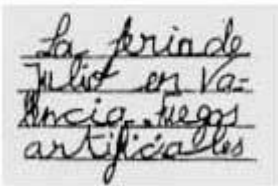 La feria de
Julio en Va-
lencia. fuegos
artificiales